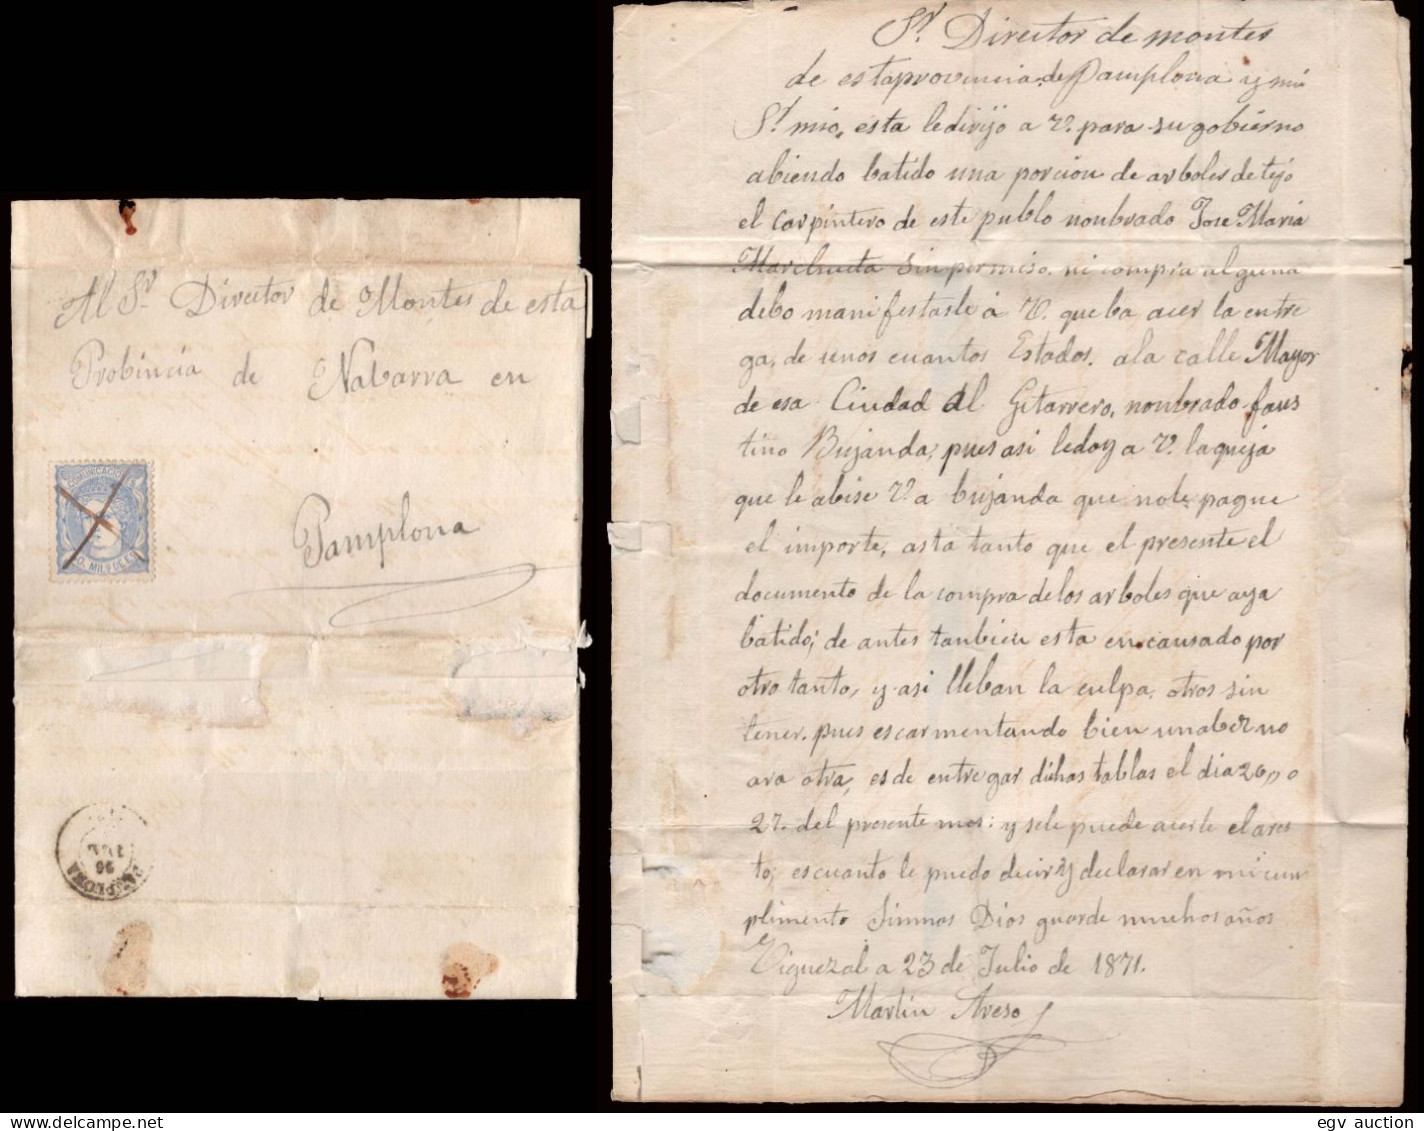 Al Sr Director de Montes de esta
Probincia de Nabarra en
Pamplona
COMUNICACIONES
50. MILS DE E
PAMPLONA
JUL
Sr. Director de montes
de esta provincia de Pamplona y mui
Sr. mio, esta le dirijo a V. para su gobierno
abiendo batido una porcion de arboles de tejo
el carpintero de este pueblo nonbrado Jose Maria
Marchueta sin permiso, ni compra alguna
debo manifestasle á V. que ba acer la entre
ga, de unos cuantos Estados. a la calle Mayor
de esa Ciudad al Gitarrero, nonbrado faus
tino Bujanda, pues asi le doy a V. la queja
que le abise V. a bujanda que no le pague
el importe, asta tanto que el presente el
documento de la compra de los arboles que aya
batido; de antes tanbien esta encausado por
otro tanto, y asi lleban la culpa, otros sin
tener. pues escarmentando bien una bez no
ara otra, es de entregar dichas tablas el dia 26, o
27. del presente mes: y se le puede acerle el ares
to; es cuanto le puedo decir y declarar en mi cun
plimento Dios guarde muchos años
Viguezal a 23 de Julio de 1871.
Martin Areso
www.delcampe.net
egv auction